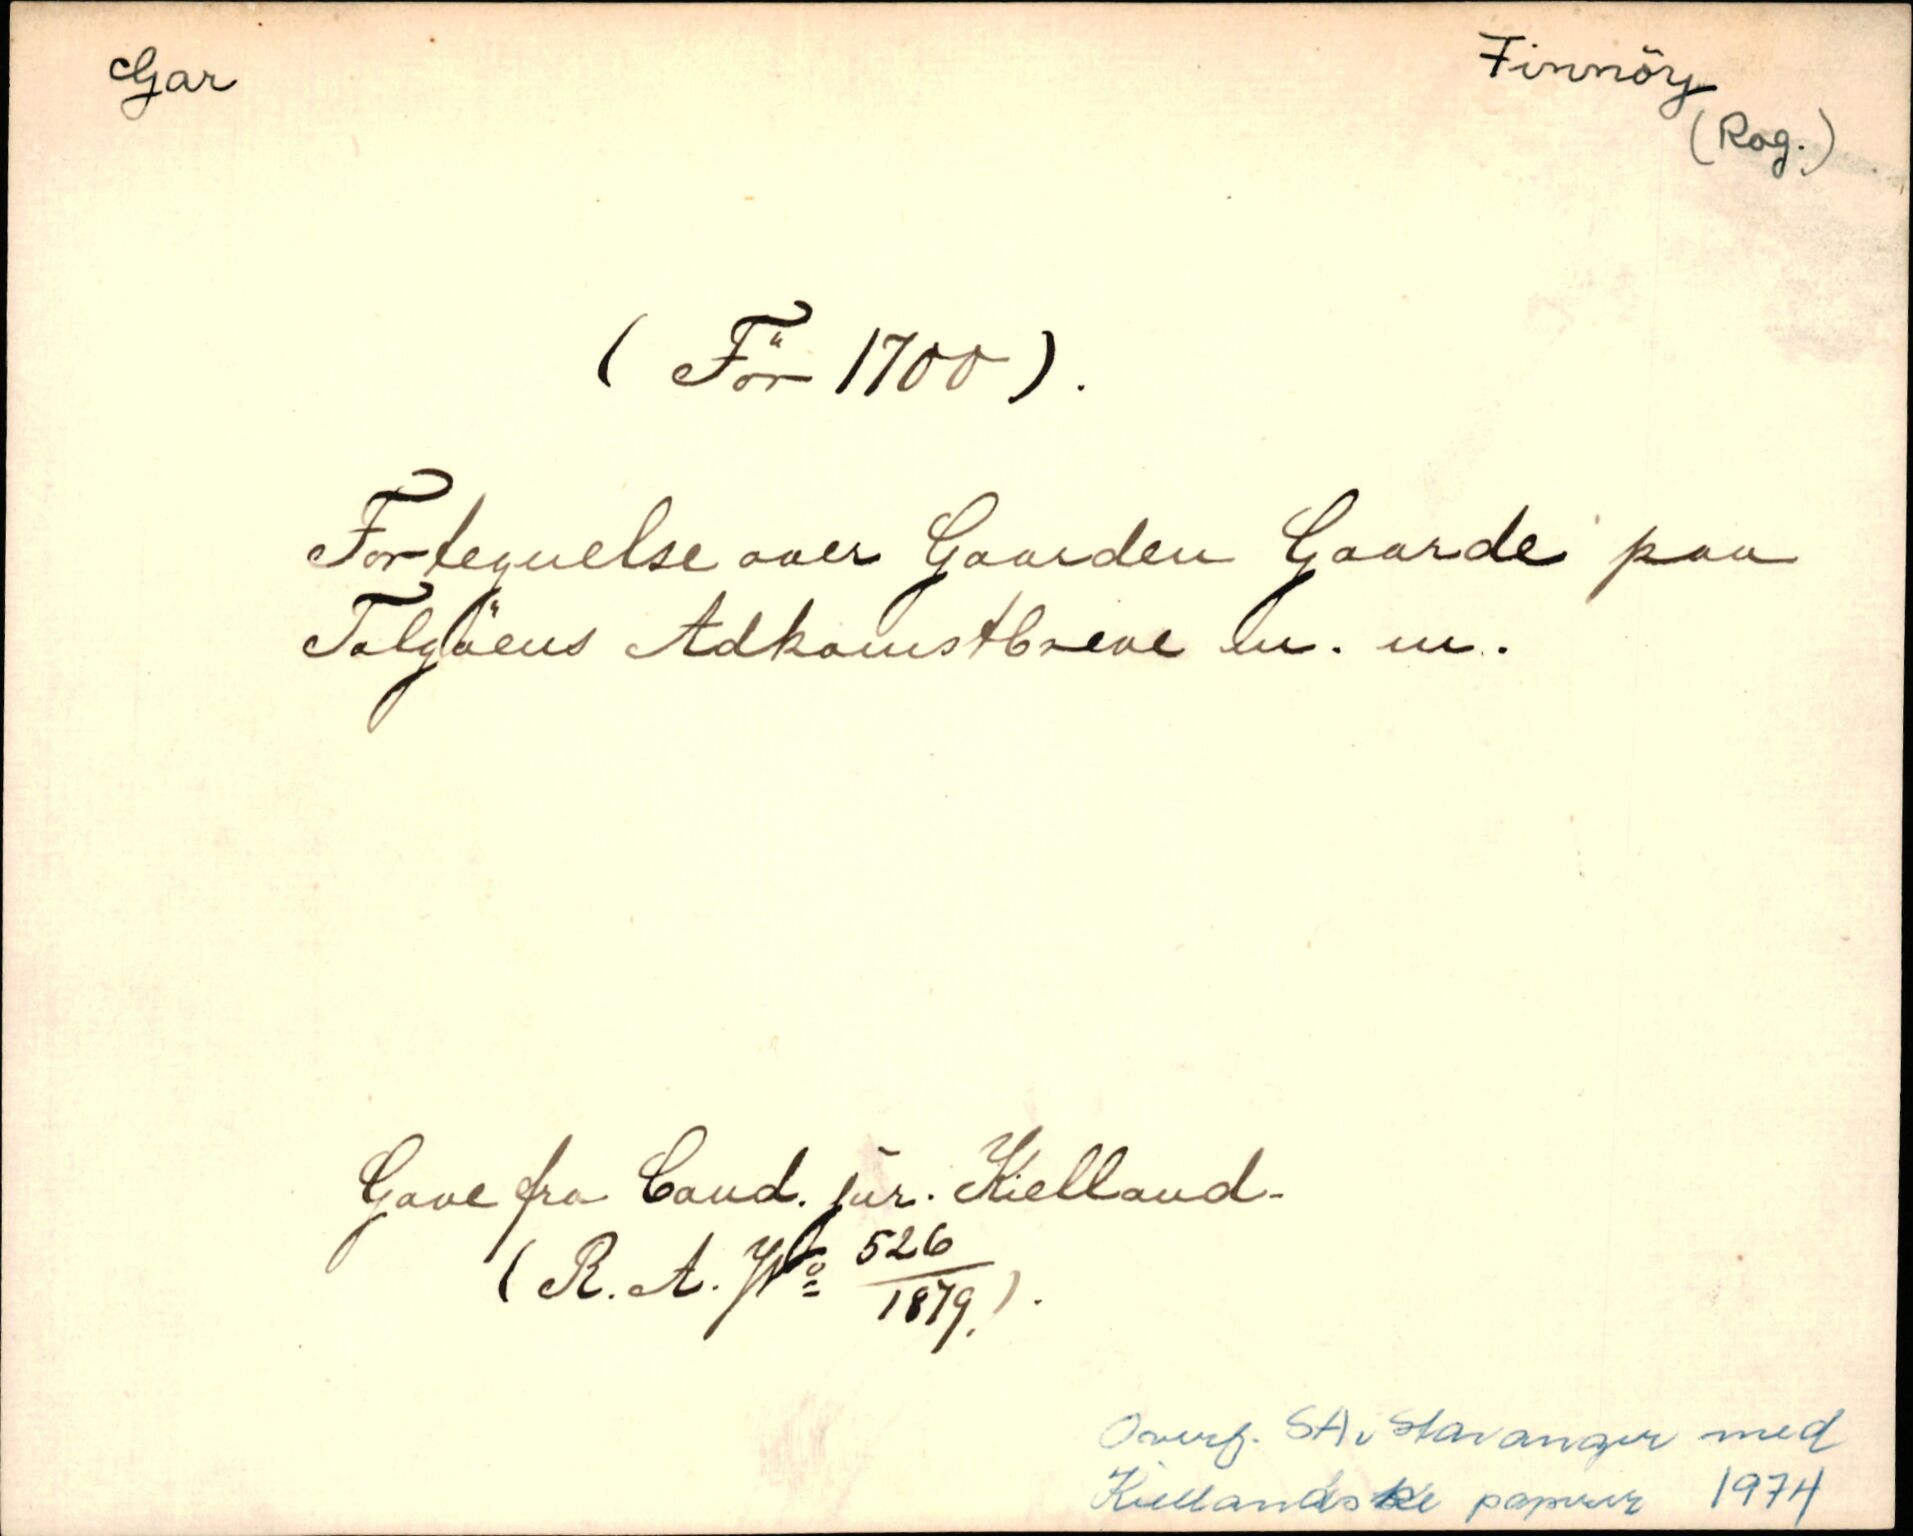 Gar
Finnöy
(Rog.)
(Før 1700).
Fortegnelse over Gaarden Gaarde paa
Talgøens Adkomstbreve m. m.
Gave fra Cand. jur. Kielland.
(R. A. No 526/1879).
Overf. SA, Stavanger med
Kiellandske papirer 1974